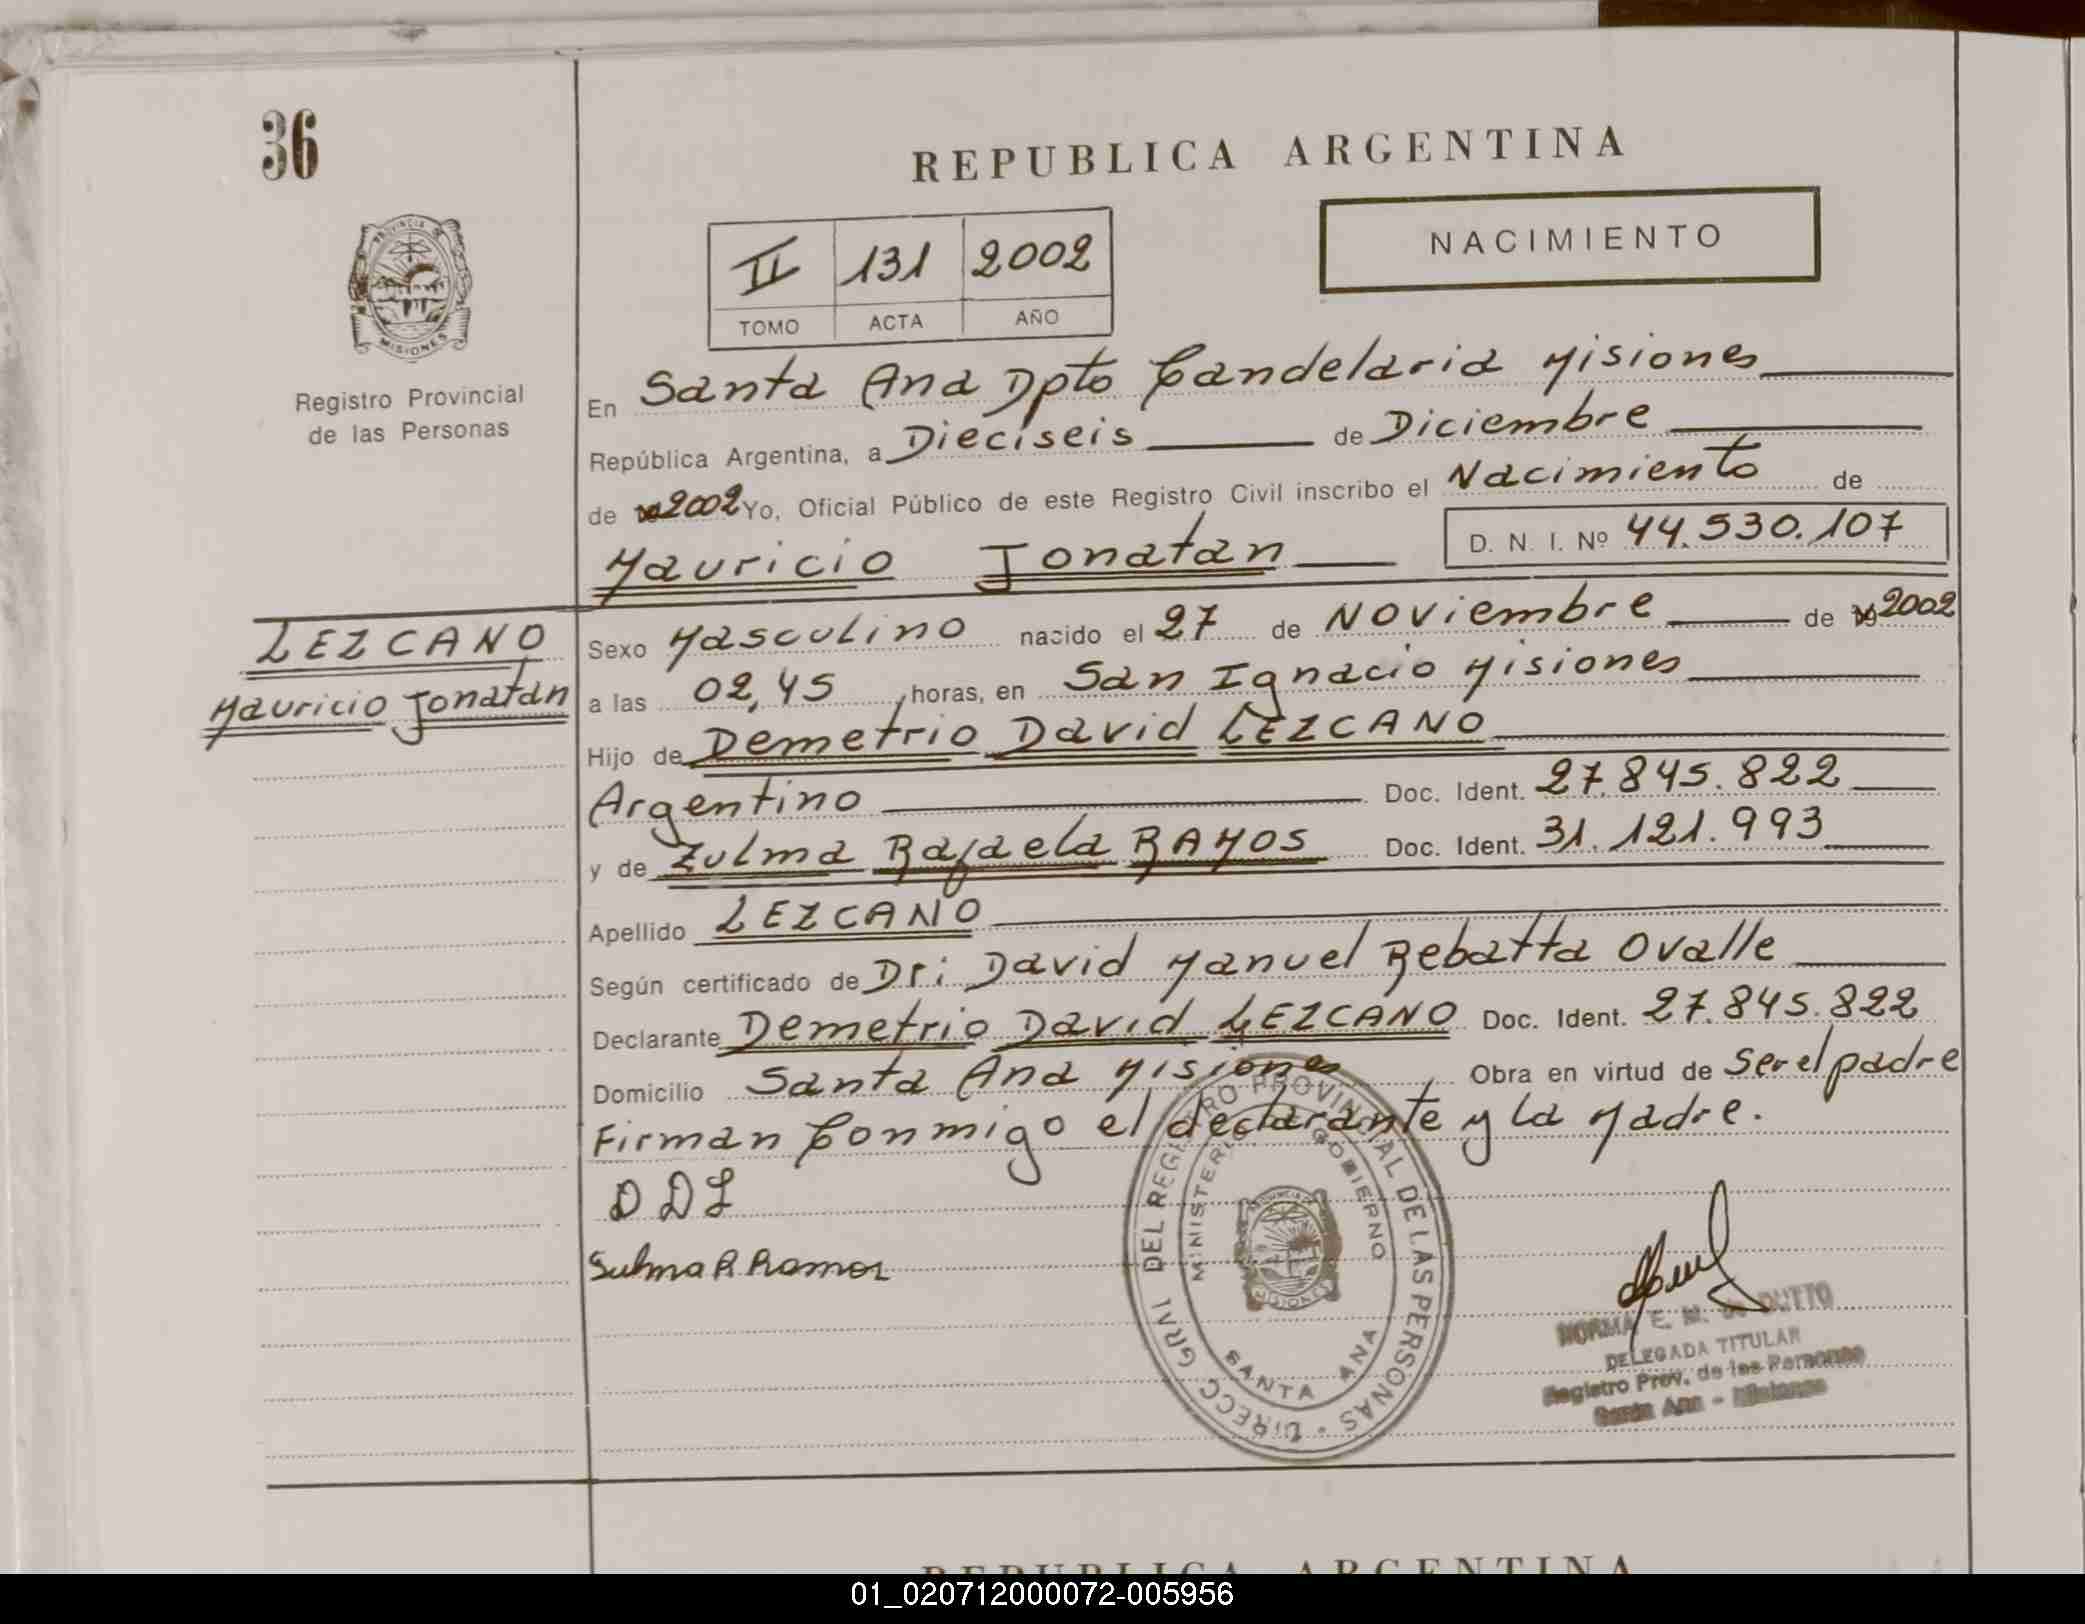 36
REPUBLICA ARGENTINA
NACIMIENTO
II 131 2002
TOMO ACTA AÑO
PROVINCIA DE
MISIONES
Registro Provincial
de las Personas
En Santa Ana Dpto Candelaria Misiones
República Argentina, a Dieciseis de Diciembre
de 2002 Yo, Oficial Público de este Registro Civil inscribo el Nacimiento de
Mauricio Jonatan D. N. I. Nº 44.530.107
LEZCANO
Mauricio Jonatan
Sexo Masculino nacido el 27 de Noviembre de 2002
a las 02,45 horas, en San Ignacio Misiones
Hijo de Demetrio David LEZCANO
Argentino Doc. Ident. 27.845.822
y de Zulma Rafaela RAMOS Doc. Ident. 31.121.993
Apellido LEZCANO
Según certificado de Dr: David Manuel Rebatta Ovalle
Declarante Demetrio David LEZCANO Doc. Ident. 27.845.822
Domicilio Santa Ana Misiones Obra en virtud de Ser el padre
Firman Conmigo el declarante y la Madre.
DDL
Sulma R Ramos
DIRECC GRAL DEL REGISTRO PROVINCIAL DE LAS PERSONAS
MINISTERIO GOBIERNO
MISIONES
SANTA ANA
NORMA E. M. DUTTO
DELEGADA TITULAR
Registro Prov. de las Personas
Santa Ana - Misiones
REPUBLICA ARGENTINA
01_020712000072-005956